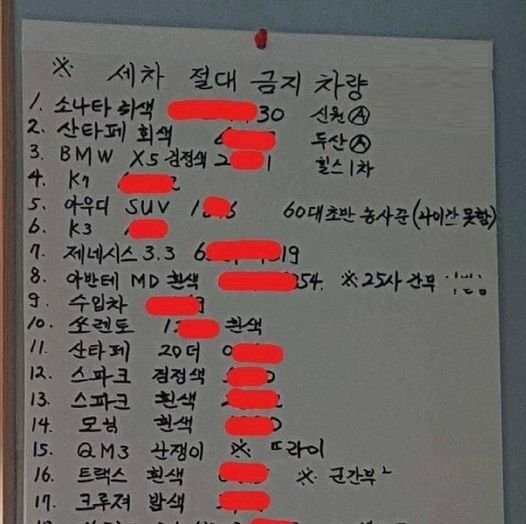 ※ 세차 절대 금지 차량
1. 소나타 30 신원 Ⓐ
2. 산타페 회색 6 두산 Ⓐ
3. BMW X5 검정색 2 1 힐스 1차
4. K7 2
5. 아우디 SUV 1 6 60대초반 농사꾼 (사이간 못함)
6. K3 1
7. 제네시스 3.3 6 19
8. 아반테 MD 흰색 354. ※ 25사 간부
9. 수입차
10. 쏘렌토 1 흰색
11. 산타페 20더 0
12. 스파크 검정색 0
13. 스파크 흰색
14. 모닝 흰색 0
15. QM3 난쟁이 ※ 또라이
16. 트랙스 흰색 ※ 군간부
17. 크루져 밤색